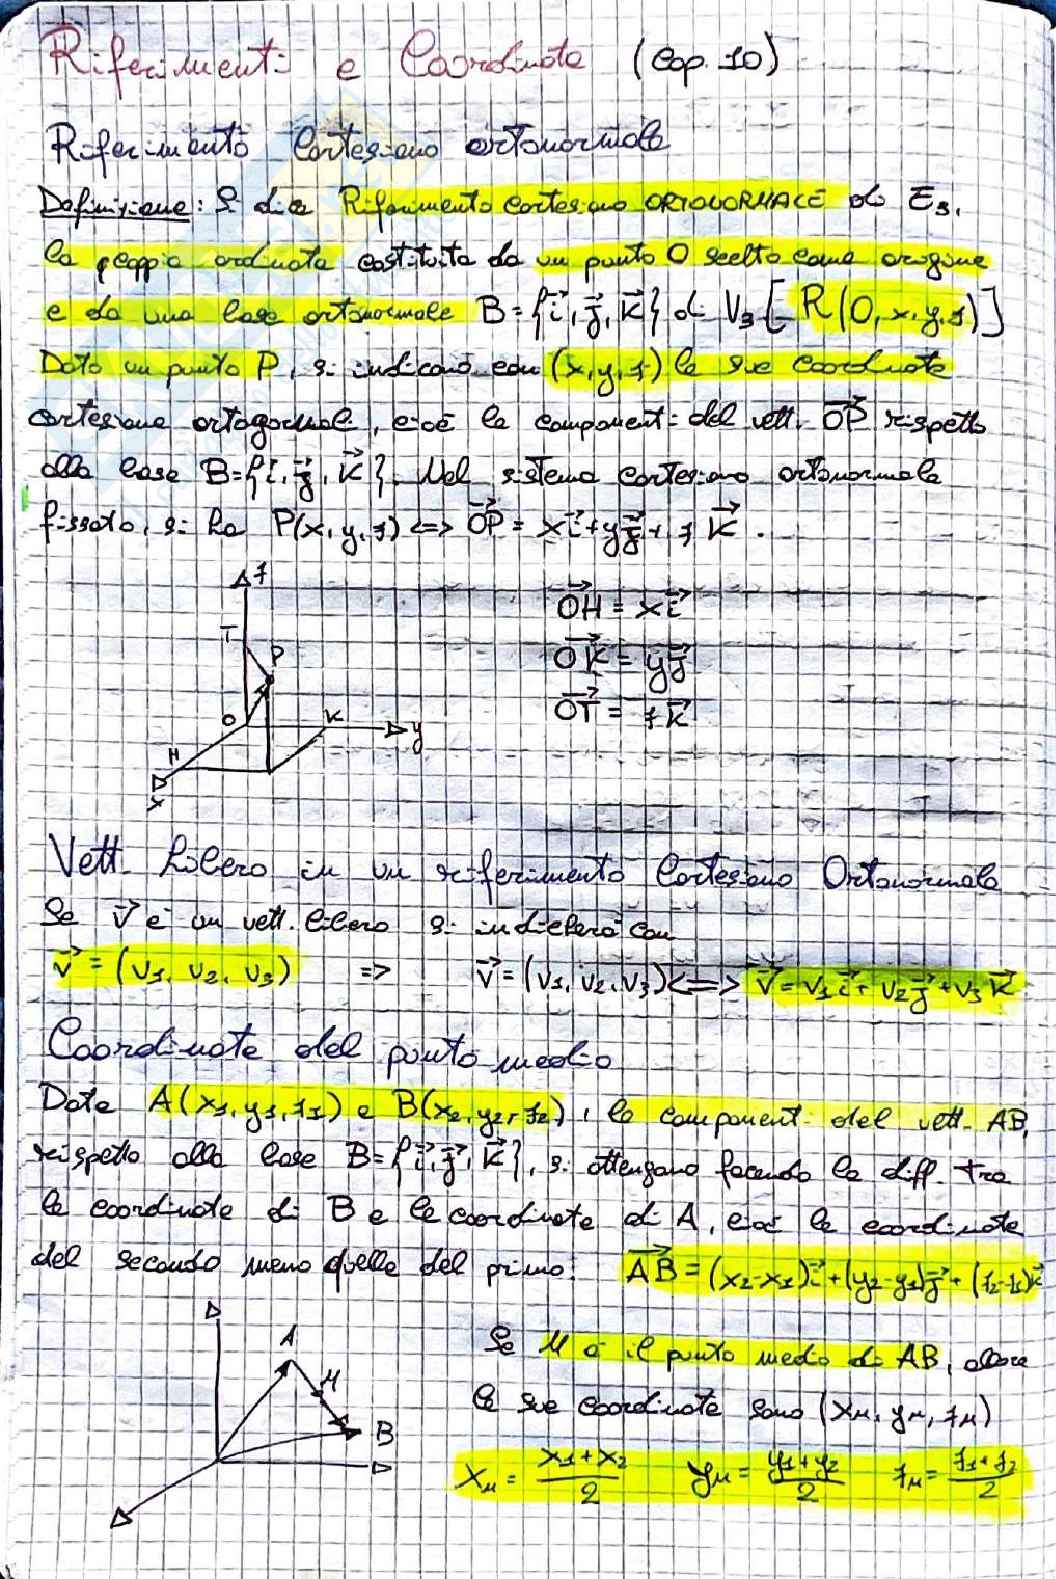 Riferimenti e Coordinate (Cap. 10)
Riferimento Cartesiano ortonormale
Definizione: Si dice Riferimento cartesiano ORTONORMALE di E₃,
la coppia ordinata costituita da un punto O scelto come origine
e da una base ortonormale B={i⃗, j⃗, k⃗} di V₃ [R(O,x,y,z)]
Dato un punto P, si indicano con (x,y,z) le sue coordinate
cartesiane ortogonali, cioè le componenti del vett. OP⃗ rispetto
alla base B={i⃗, j⃗, k⃗}. Nel sistema cartesiano ortonormale
fissato, si ha P(x,y,z) <=> OP⃗ = xi⃗+yj⃗+zk⃗.
z
T
P
O
K
y
H
x
OH⃗ = xi⃗
OK⃗ = yj⃗
OT⃗ = zk⃗
Vett. Libero in un riferimento Cartesiano Ortonormale
Se v⃗ è un vett. libero si indicherà con
v⃗ = (v₁, v₂, v₃) => v⃗ = (v₁, v₂, v₃) <=> v⃗ = v₁i⃗+v₂j⃗+v₃k⃗
Coordinate del punto medio
Date A(x₁,y₁,z₁) e B(x₂,y₂,z₂), le componenti del vett. AB,
rispetto alla base B={i⃗, j⃗, k⃗}, si ottengono facendo la diff. tra
le coordinate di B e le coordinate di A, cioè le coordinate
del secondo meno quelle del primo: AB⃗ = (x₂-x₁)i⃗+(y₂-y₁)j⃗+(z₂-z₁)k⃗
A
M
B
Se M è il punto medio di AB, allora
le sue coordinate sono (xₘ, yₘ, zₘ)
xₘ = (x₁+x₂)/2 yₘ = (y₁+y₂)/2 zₘ = (z₁+z₂)/2